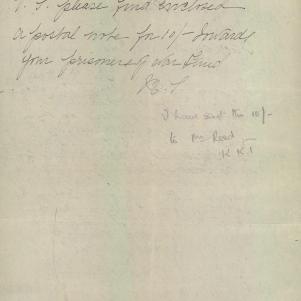 P. S. please find enclosed
a postal note for 10/- towards
your prisoners of war fund
I have sent the 10/-
to Mr Reed